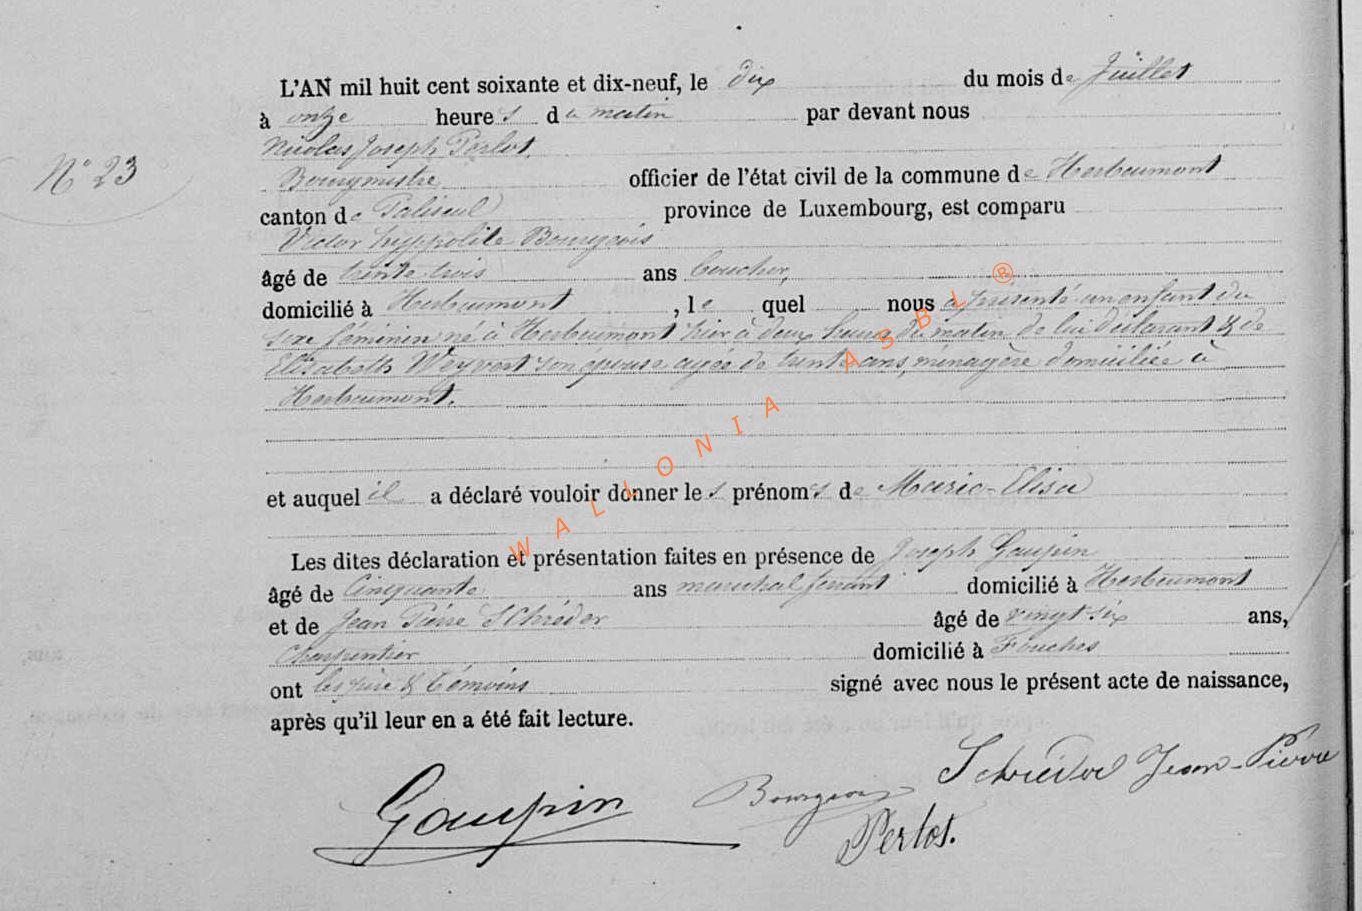 L'AN mil huit cent soixante et dix-neuf, le dix du mois de Juillet
à onze heures du matin par devant nous
Nicolas Joseph Perlot,
N° 23
Bourgmestre officier de l'état civil de la commune de Herbeumont
canton de Paliseul province de Luxembourg, est comparu
Victor hyppolite Bourgeois
âgé de trente trois ans boucher,
domicilié à Herbeumont, le quel nous a présenté un enfant du
sexe féminin né à Herbeumont hier à deux heures du matin de lui déclarant & de
Elisabeth Weyvert son épouse agée de trente ans, ménagère domiciliée à
Herbeumont.
et auquel il a déclaré vouloir donner les prénoms de Marie-Elisa
Les dites déclaration et présentation faites en présence de Joseph Gaupin
âgé de Cinquante ans marechal ferrant domicilié à Herbeumont
et de Jean Pierre Schréder âgé de vingt six ans,
Charpentier domicilié à Fouches
ont les père & témoins signé avec nous le présent acte de naissance,
après qu'il leur en a été fait lecture.
Schréder Jean-Pierre
Gaupin Bourgeois
Perlot.
WALLONIA ASBL ®